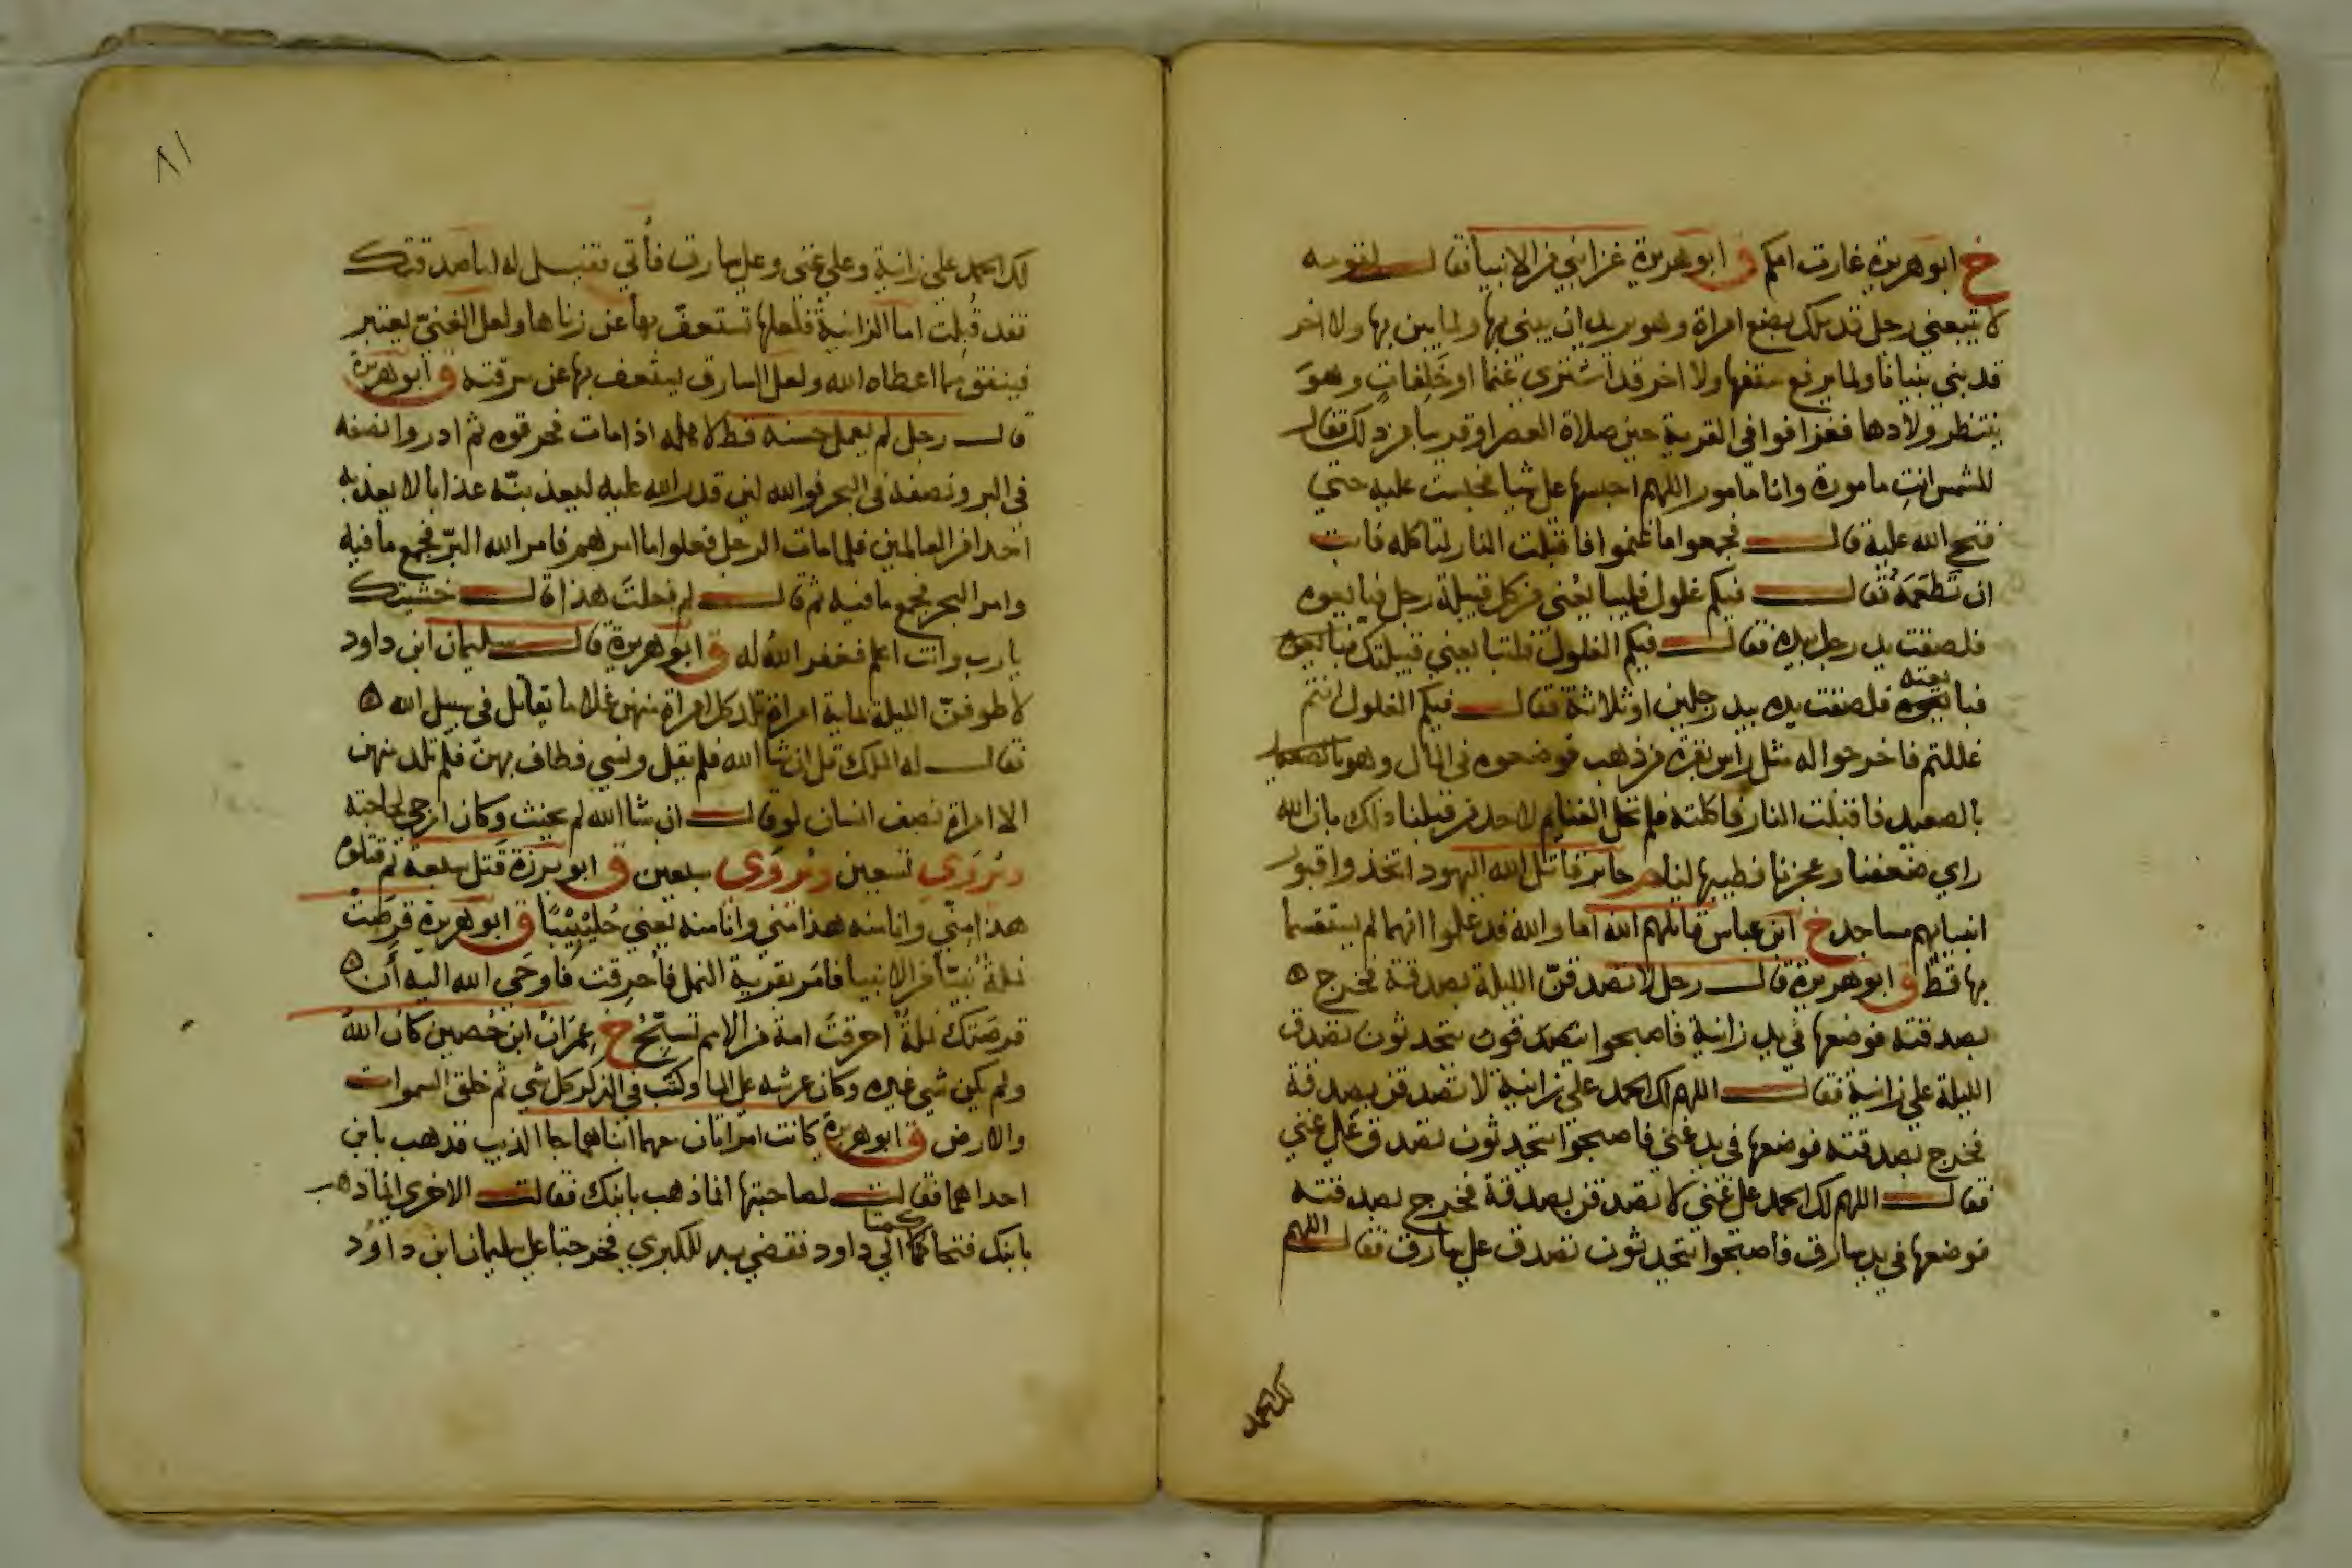 خ ابو هريرة غارت امكم ق ابو هريرة غزا نبي من الانبيا فقال لقومه
لا يتبعني رجل قد ملك بضع امراة وهو يريد ان يبني بها ولما يبن بها ولا اخر
قد بنى بنيانا ولما يرفع سقفها ولا اخر قد اشترى غنما او خَلِفاتٍ وهوَ
ينتظر ولادها فغزا فوافى القرية حين صلاة العصر او قريبا من ذلك فقال
للشمس انتِ مامورة وانا مامور اللهم احبسها على شيا فحبست عليه حتي
فتح الله عليه قال فجمعوا ما غنموا فاقبلت النار لتاكله فابت
ان تَطْعَمَهُ فقال فيكم غلول فليبايعْني من كل قبيلة رجل فبايعوه
فلصقت يد رجل بيده فقال فيكم الغلول فلتبايعني قبيلتك فبايعوه
فبايعته فلصقت يده بيد رجلين او ثلاثة فقال فيكم الغلول انتم
غللتم فاخرجوا له مثل راس بقرة من ذهب فوضعوه في المال وهو بالصعيد
بالصعيد فاقبلت النار فاكلته فلم تحل الغنايم لاحد من قبلنا ذلك بان الله
راي ضعفنا وعجزنا فطيبها لنا م جابر قاتل الله اليهود اتخذوا قبور
انبيايهم مساجد خ ابن عباس قاتلهم الله اما والله قد علموا انهما لم يستقسما
بها قطّ ق ابو هريرة قال رجل لاتصدقنّ الليلة بصدقة فخرج ه
بصدقته فوضعها في يد زانية فاصبحوا يتحدثون تصدق
الليلة علي زانية فقال اللهم لك الحمد علي زانية لاتصدقن بصدقة
فخرج بصدقته فوضعها في يد غني فاصبحوا يتحدثون تصدق على غني
فقال اللهم لك الحمد على غني لاتصدقن بصدقة فخرج بصدقته
فوضعها في يد سارق فاصبحوا يتحدثون تصدق علي سارق فقال اللهم
لك الحمد
٨١
لك الحمد علي زانية وعلي غني وعلى سارق فأتي فقيل له اما صدقتك
فقد قُبِلت اما الزانية فلعلها تستعفّ بها عن زناها ولعل الغنيّ يعتبر
فينفق مما اعطاه الله ولعل السارق يستعف بها عن سرقته ق ابو هريرة
قال رجل لم يعمل حسنة قط لاهله اذا مات فحرقوه ثم اذروا نصفه
في البر ونصفه في البحر فوالله لئن قدر الله عليه ليعذبنّه عذابا لا يعذبه
احدا من العالمين فلما مات الرجل فعلوا ما امرهم فامر الله البرّ فجمع ما فيه
وامر البحر فجمع ما فيه ثم قال لم فعلتَ هذا قال خشيتك
يارب وانت اعلم فغفر اللهُ له ق ابو هريرة قال سليمان ابن داود
لاطوفنّ الليلة بماية امراة تلد كل امراة منهن غلاما يقاتل في سبيل الله ه
فقال له الملك قل ان شا الله فلم يقل ونسي فطاف بهنّ فلم تلد منهن
الا امراة نصف انسان لو قال ان شا الله لم يحنث وكان ارجي لحاجته
ويُروَى تسعين ويُروَى سبعين ق ابو برزة قَتل سبعة ثم قتلوه
هذا مِنّي وانا منه هذا مني وانا منه يعني جُلَيْبِيْبًا ق ابو هريرة قرصَتْ
نملةٌ نبيّا من الانبيا فامَر بقرية النمل فأُحرِقت فاوحَى الله اليه أَن ه
قرصَتك نملةٌ احرقتَ امة من الامم تسبّحُ خ عِمرَانُ ابن حُصين كان اللهُ
ولم يكن شي غيره وكان عرشه على الما وكتب في الذكر كل شي ثم خلق السموات
والارض ق ابو هريرة كانت امراتان معهما ابناهما جا الذيب فذهب بابن
احداهما فقالت لصاحبتها انما ذهب بابنك فقالت الاخرى انما ذهب
بابنك فتحاكمتا الي داود فقضي به للكبري فخرجتا على سليمان ابن داوُد